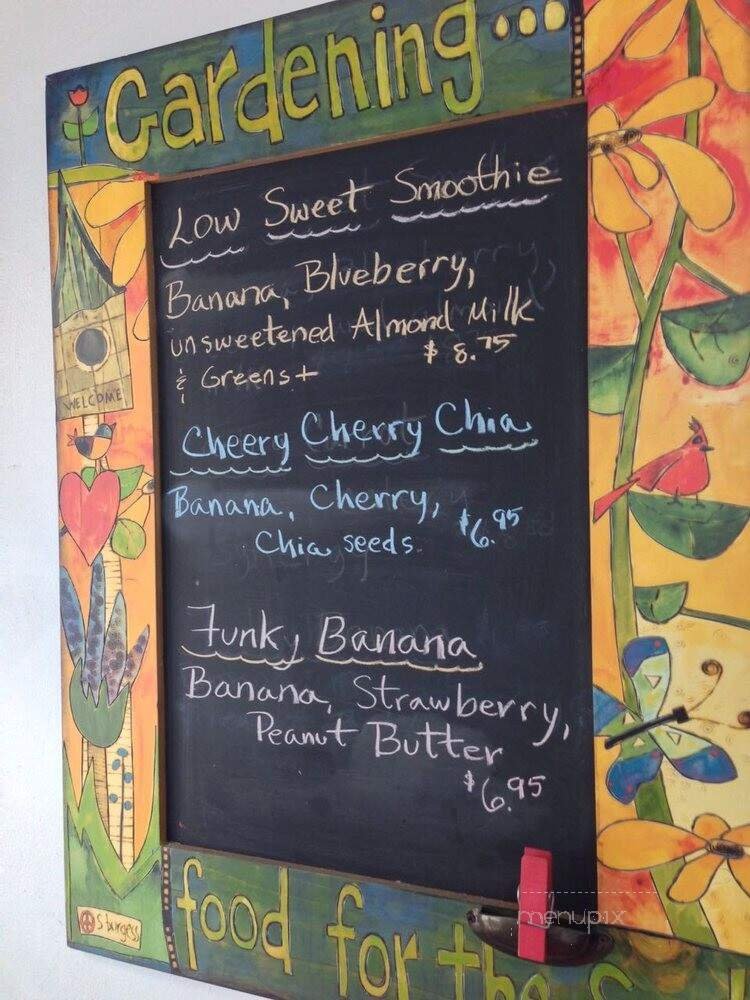 Gardening...
Low Sweet Smoothie
Banana, Blueberry,
unsweetened Almond Milk
& Greens+ $8.75
WELCOME
Cheery Cherry Chia
Banana, Cherry,
Chia seeds $6.95
Funky Banana
Banana, Strawberry,
Peanut Butter
$6.95
S burgess
food for the S
menupix